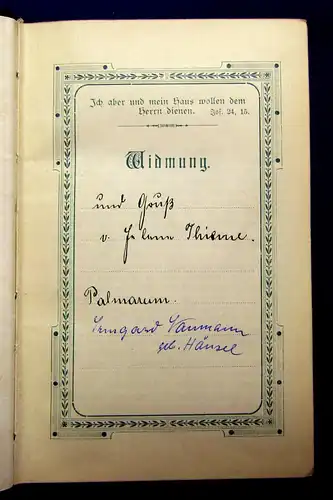 Ich aber und mein Haus wollen dem
Herrn dienen. Jos. 24, 15.
Widmung.
und Gruß
v. Helene Thieme.
Palmarum.
Irmgard Naumann
geb. Hänsel